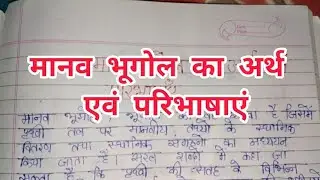 मानव भूगोल का अर्थ
एवं परिभाषाएं
मानव भूगोल है जिसमें
पृथ्वी तल पर मानवीय तथ्यों के स्थानिक
वितरण का अध्ययन
किया जाता है। सरल शब्दों में कहा जा
सकता है कि पृथ्वी की सतह के विभिन्न